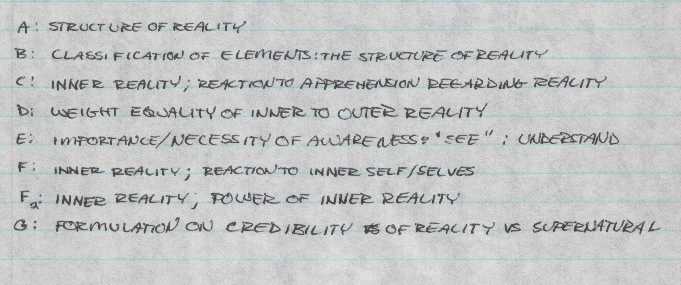 A: STRUCTURE OF REALITY
B: CLASSIFICATION OF ELEMENTS: THE STRUCTURE OF REALITY
C: INNER REALITY; REACTION TO APPREHENSION REGARDING REALITY
D: WEIGHT EQUALITY OF INNER TO OUTER REALITY
E: IMPORTANCE/NECESSITY OF AWARENESS: "SEE"; UNDERSTAND
F: INNER REALITY; REACTION TO INNER SELF/SELVES
Fa: INNER REALITY; POWER OF INNER REALITY
G: FORMULATION ON CREDIBILITY OF REALITY VS SUPERNATURAL